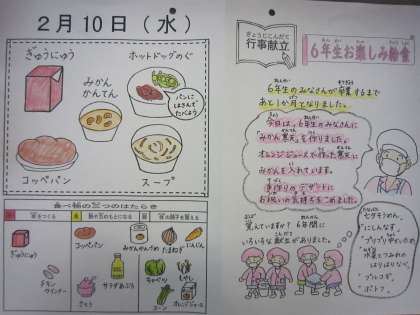 2月10日(水)
ぎゅうにゅう
ホットドッグのぐ
みかん
かんてん
パンに
はさんで
たべよう
コッペパン
スープ
食べ物の三つのはたらき
赤
黄
緑
コッペパン
みかんかんづめ
たまねぎ
にんじん
ぎゅうにゅう
チキン
ウインナー
さとう
サラダあぶら
キャベツ
もやし
コーン
オレンジジュース
ぎょうじこんだて
行事献立
6年生お楽しみ給食
6年生のみなさんが卒業するまで
あと1か月となりました。
今日は、6年生のみなさんに
「みかん寒天」を作りました。
オレンジジュースで作った寒天に
みかんを入れています。
手作りのデザートに
お祝いの気持ちをこめました。
覚えていますか?6年間に
いろいろな献立がありました。
・七夕そうめん、
・にしんなす、
・ブルコギ、
・ポトフ、